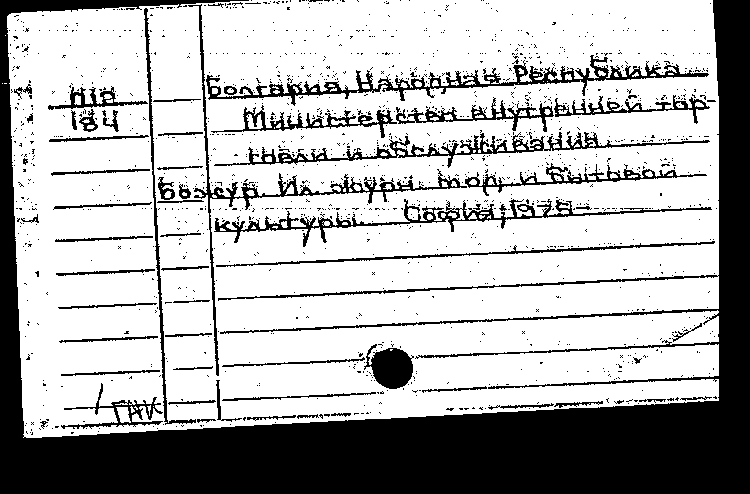 П18 Болгария, Народная Республика
184 Министерство внутренней тор-
говли и обслуживания.
Божур. Ил. журн. мод и бытовой
культуры. София, 1975-
ГАК